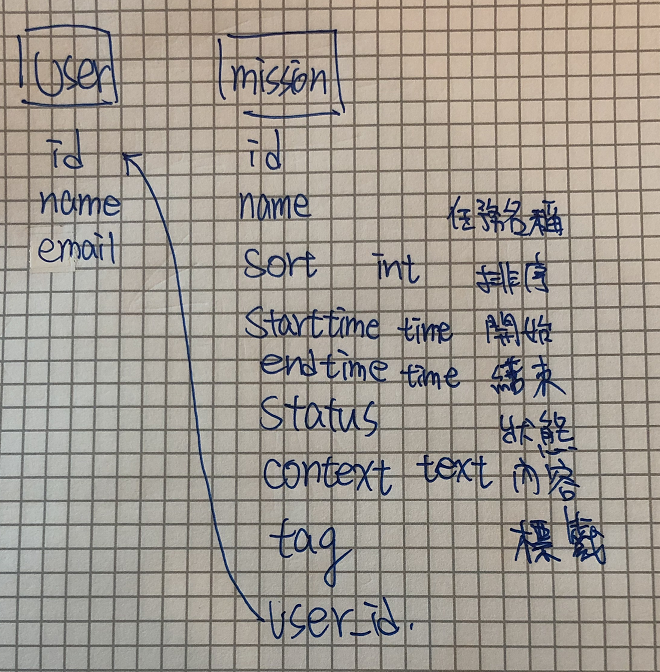 User
id
name
email
missōn
id
name 任務名稱
sort int 排序
starttime time 開始
endtime time 結束
status 狀態
context text 內容
tag 標籤
user_id.